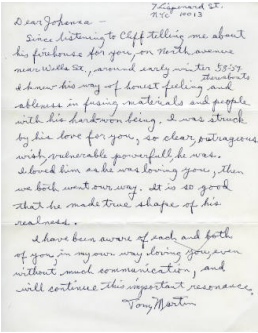 7 Lispenard St.
NYC 10013
Dear Johanna —
Since listening to Cliff telling me about
his firehouse for you, on North avenue
near Wells St., around early winter 53-57
I knew his way of honest feeling and
ableness in fusing materials and people
with his hardwon being. I was struck
by his love for you, so clear, outrageous
wish, vulnerable powerfull, he was.
I loved him as he was loving you, then
we both went our way. It is so good
that he made true shape of his
realness.
I have been aware of each and both
of you, in my own way loving you, even
without much communication, and
will continue this important resonance.
Tony Martin